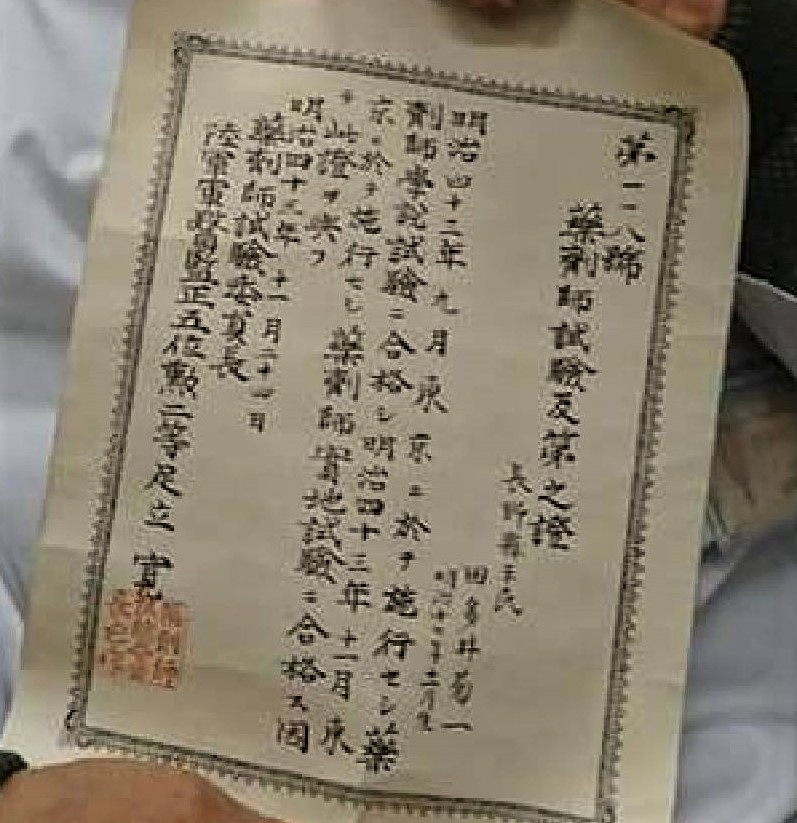 第一一八號
藥劑師試驗及第之證
長野縣平民
井菊一
明治四十二年九月東京ニ於テ施行セシ藥
劑師學說試驗ニ合格シ明治四十三年十一月東
京ニ於テ施行セシ藥劑師實地試驗ニ合格ス因
テ此證ヲ與フ
明治四十三年十一月二十四日
藥劑師試驗委員長
陸軍軍醫監正五位勳二等足立寬